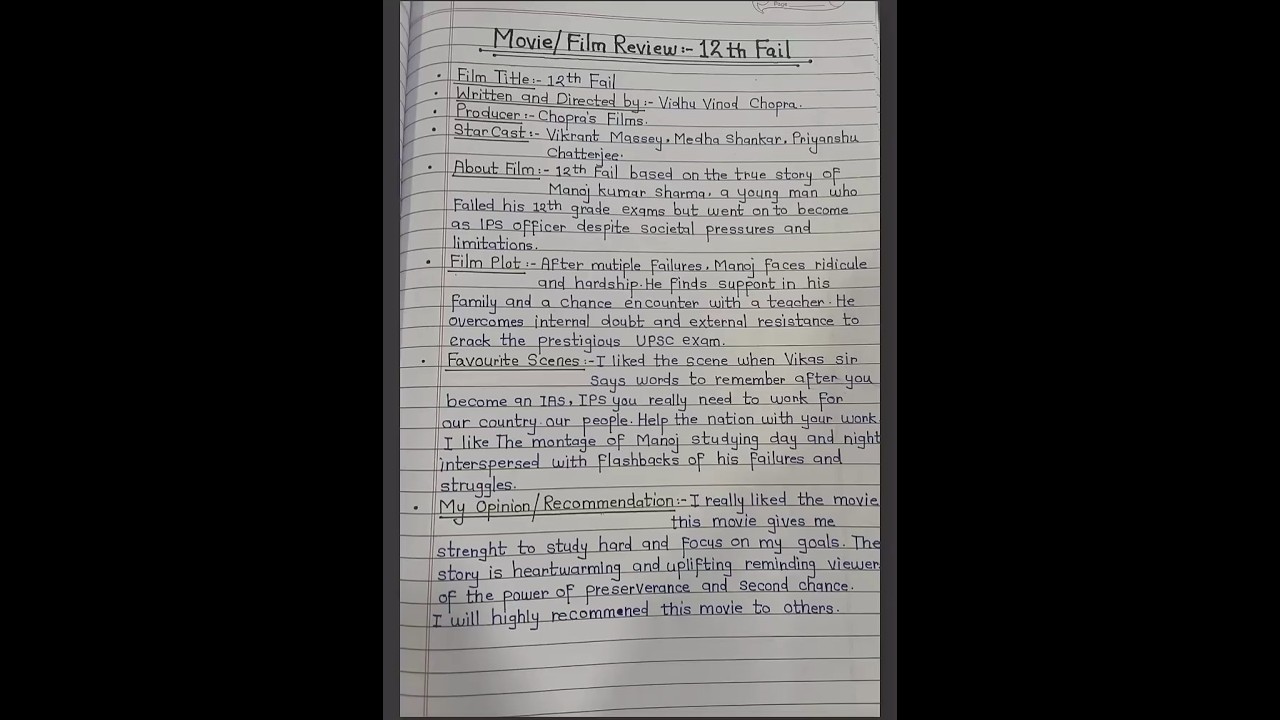 Page
Movie/Film Review:- 12th Fail
• Film Title:- 12th Fail
• Written and Directed by:- Vidhu Vinod Chopra.
• Producer:- Chopra's Films.
• Star Cast:- Vikrant Massey, Medha Shankar, Priyanshu
Chatterjee.
• About Film:- 12th Fail based on the true story of
Manoj kumar Sharma, a young man who
Failed his 12th grade exams but went on to become
as IPS officer despite societal pressures and
limitations.
• Film Plot:- After mutiple Failures, Manoj faces ridicule
and hardship. He finds support in his
Family and a chance encounter with a teacher. He
overcomes internal doubt and external resistance to
crack the prestigious UPSC exam.
• Favourite Scenes:- I liked the scene when Vikas sir
says words to remember after you
become an IAS, IPS you really need to work for
our country our people. Help the nation with your work
I like The montage of Manoj studying day and night
interspersed with flashbacks of his failures and
struggles.
• My Opinion/Recommendation:- I really liked the movie
this movie gives me
strenght to study hard and Focus on my goals. The
story is heartwarming and uplifting reminding viewer
of the power of preserverance and second chance.
I will highly recommened this movie to others.